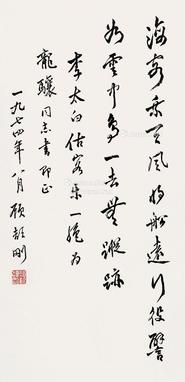 海客乘天风将船远行役譬
如云中鸟一去无踪迹
李太白估客乐一绝为
龙骧同志书即正
一九七四年八月顾颉刚